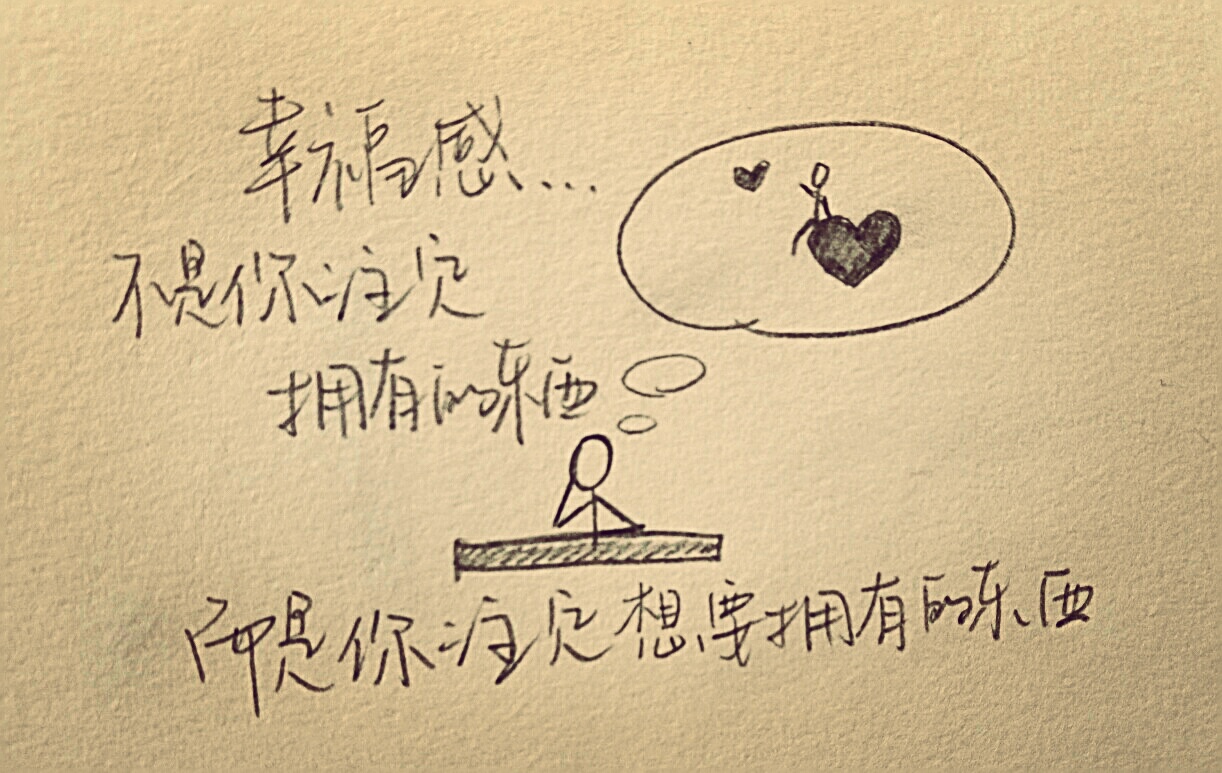 幸福感...
不是你注定
拥有的东西
而是你注定想要拥有的东西